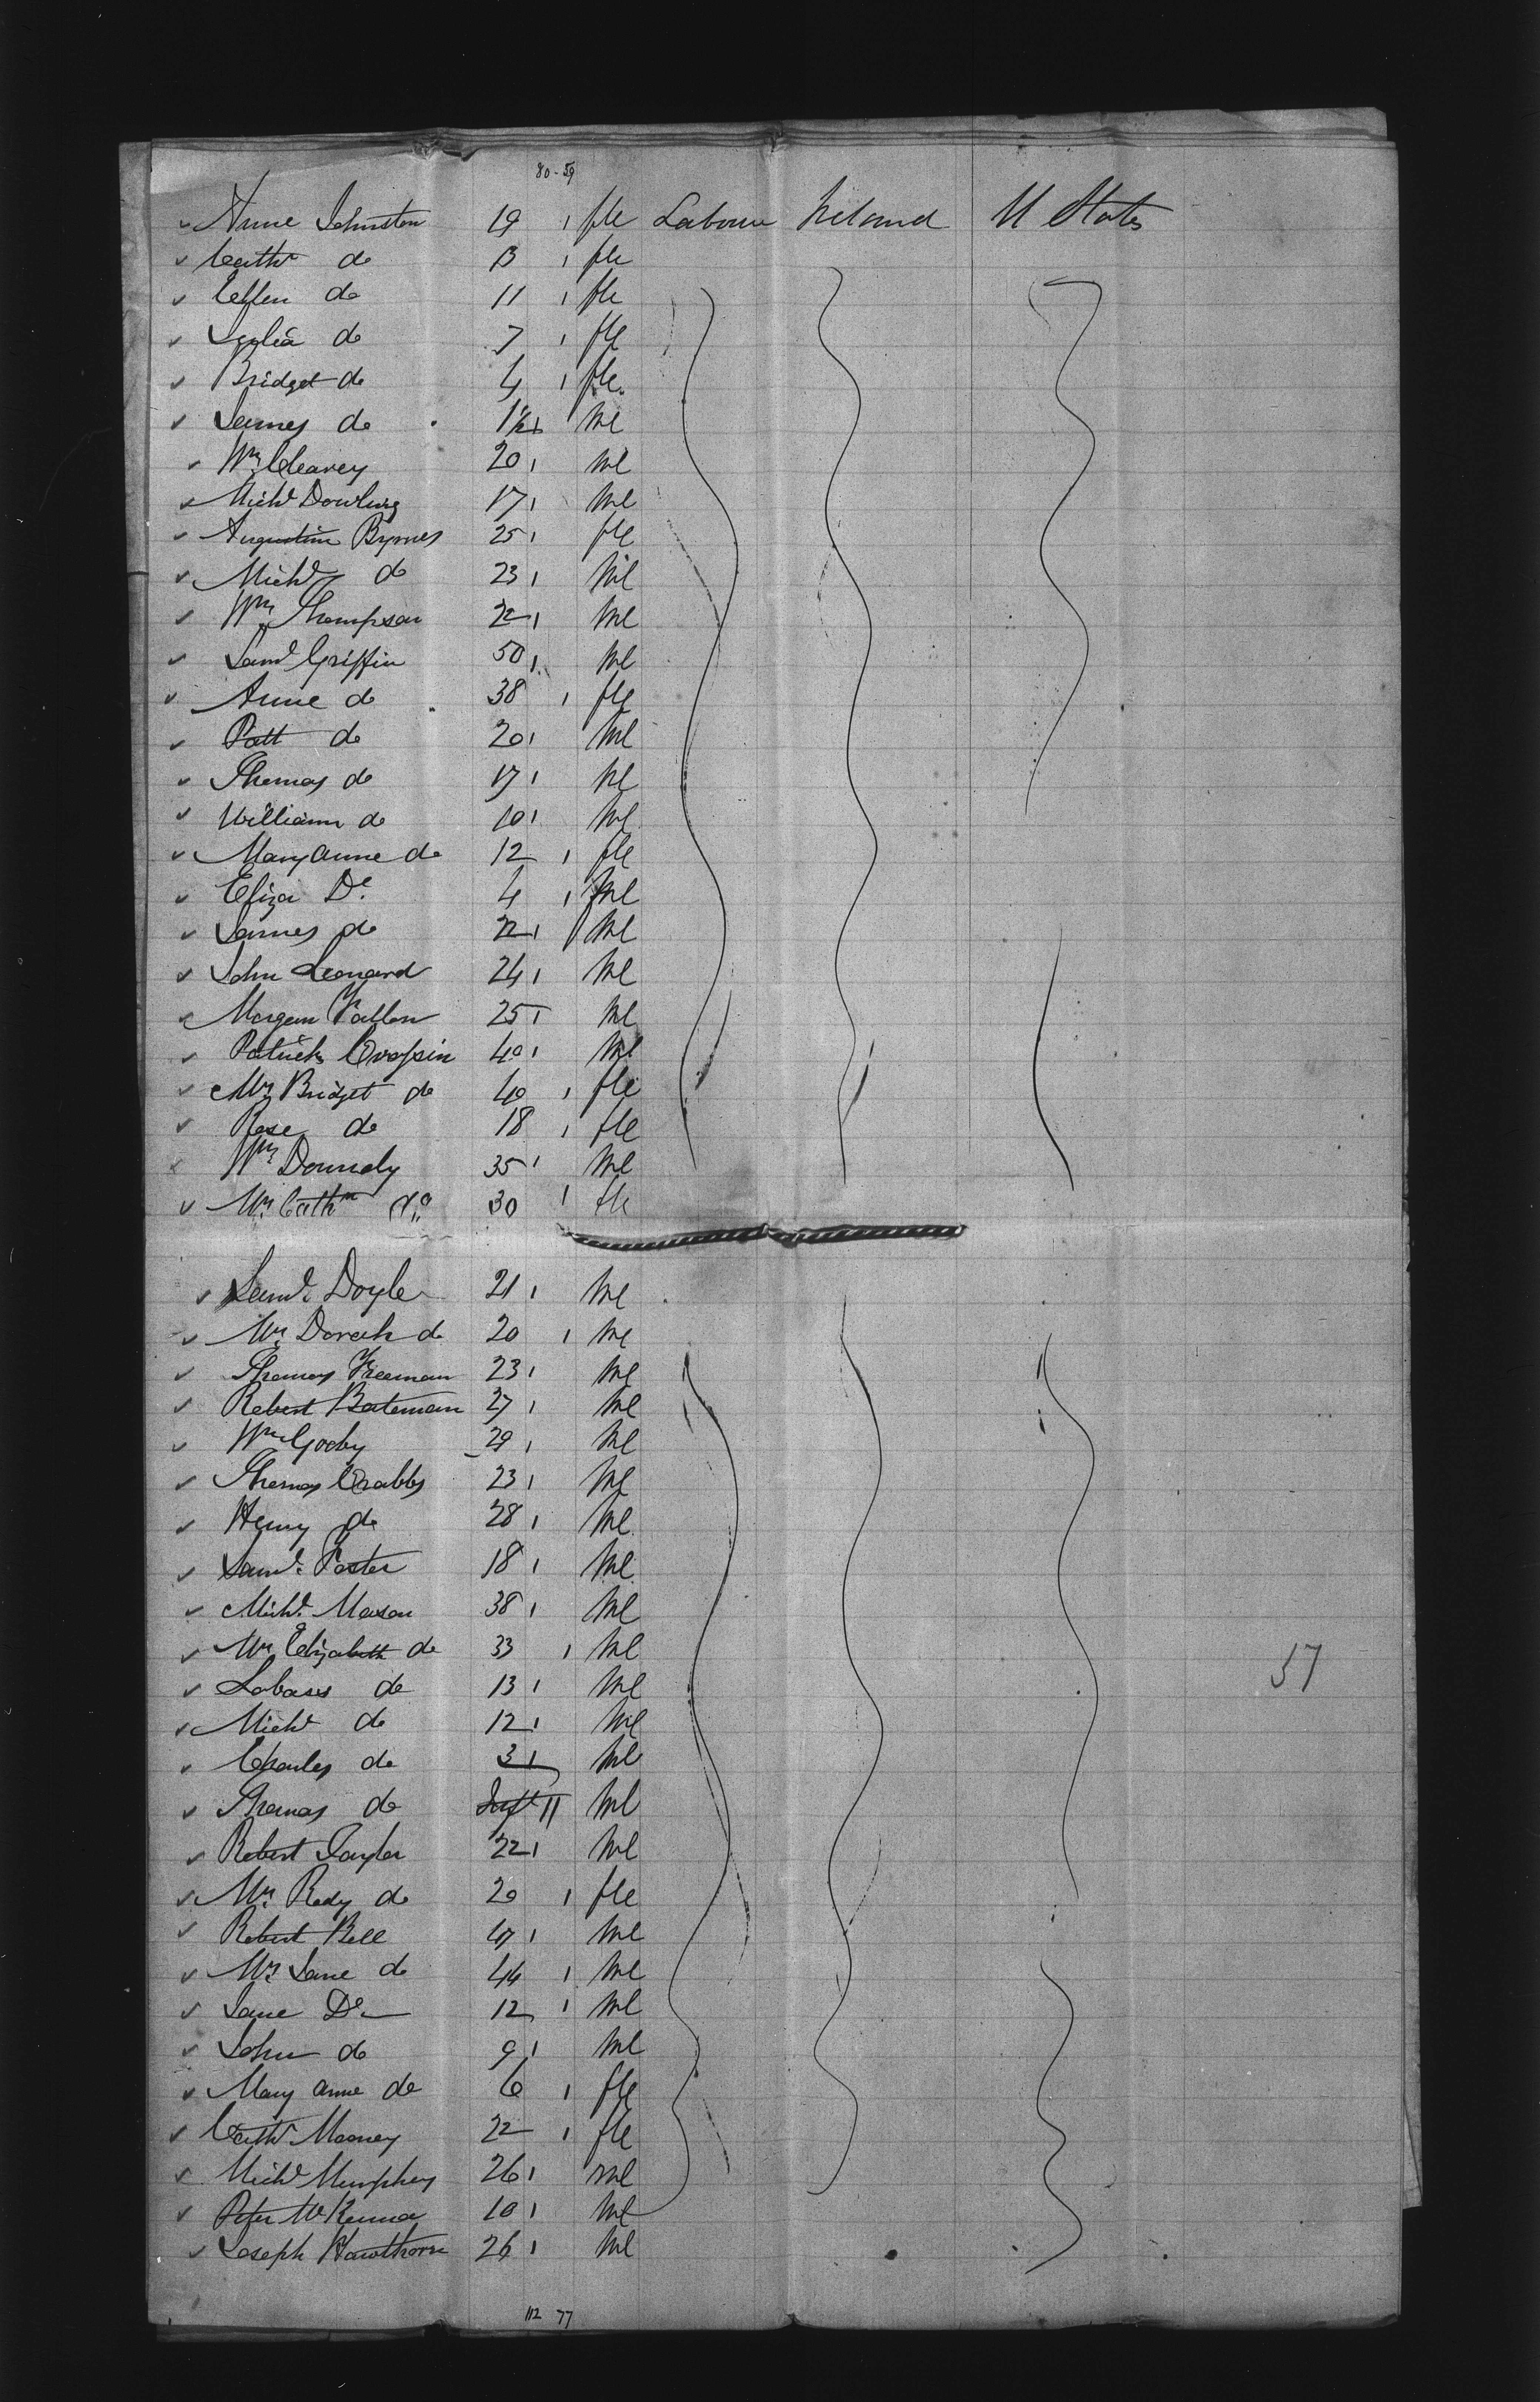 80-59
Anne Johnston 19 1 fle Labour Ireland U States
Cathr do 13 1 fle
Ellen do 11 1 fle
do 7 1 fle
Bridget do 4 1 fle
James do 1½ 1 ml
Wm Cleavey 20 1 ml
Michl Dowling 17 1 ml
Augustin Byrnes 25 1 fle
Michl do 23 1 ml
Wm Thompson 22 1 ml
Saml Griffin 50 1 ml
Anne do 38 1 fle
Patt do 20 1 ml
Thomas do 17 1 ml
William do 10 1 ml
Mary Anne do 12 1 fle
Eliza Do 4 1 ml
James do 22 1 ml
John Leonard 24 1 ml
Morgan Fallon 25 1 ml
Patrick 40 1 ml
Mrs Bridget do 40 1 fle
Rose do 18 1 fle
Wm Donnely 35 1 ml
Mrs Cathn do 30 1 fle
Saml Doyle 21 1 ml
Mrs Dorah do 20 1 ml
Thomas Freeman 23 1 ml
Robert Bateman 27 1 ml
Wm 29 1 ml
Thomas Crabbs 23 1 ml
Henry do 28 1 ml
Saml Foster 18 1 ml
Michl Mason 38 1 ml
Mrs Elizabeth do 33 1 ml
do 13 1 ml
Michl do 12 1 ml
Charles do 3 1 ml
Thomas do Inft 11 ml
Robert Taylor 22 1 ml
Mrs do 20 1 fle
Robert Bell 47 1 ml
Mrs Jane do 44 1 ml
Jane Do 12 1 ml
John do 9 1 ml
Mary Anne do 6 1 fle
Cathr Mooney 22 1 fle
Michl Murphey 26 1 ml
Peter McKenna 10 1 ml
Joseph Hawthorn 26 1 ml
57
112 77